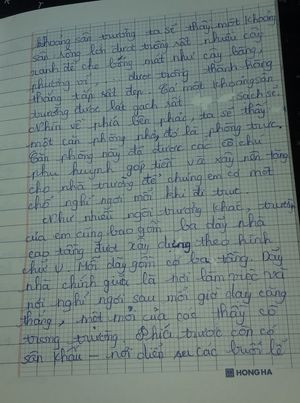 khoảng sân trường ta sẽ thấy một khoảng
sân rộng lớn được trồng rất nhiều cây
xanh để cho bóng mát như cây bàng,
phượng vĩ. được trồng thành hàng
thẳng tắp rất đẹp. Cả một khoảng sân
trường được lát gạch rất sạch sẽ.
Nhìn về phía bên phải, ta sẽ thấy
một căn phòng nhỏ đó là phòng trực.
Căn phòng này đã được các cô chú
phụ huynh góp tiền và xây nên tặng
cho nhà trường để chúng em có một
chỗ nghỉ ngơi mỗi khi đi trực.
Như nhiều ngôi trường khác, trường
của em cũng bao gồm ba dãy nhà
cao tầng được xây dựng theo hình
chữ U. Mỗi dãy gồm có ba tầng. Dãy
nhà chính giữa là nơi làm việc và
nơi nghỉ ngơi sau mỗi giờ dạy căng
thẳng, mệt mỏi của các thầy cô
trong trường. Phía trước còn có
sân khấu – nơi diễn các buổi lễ
HONG HA